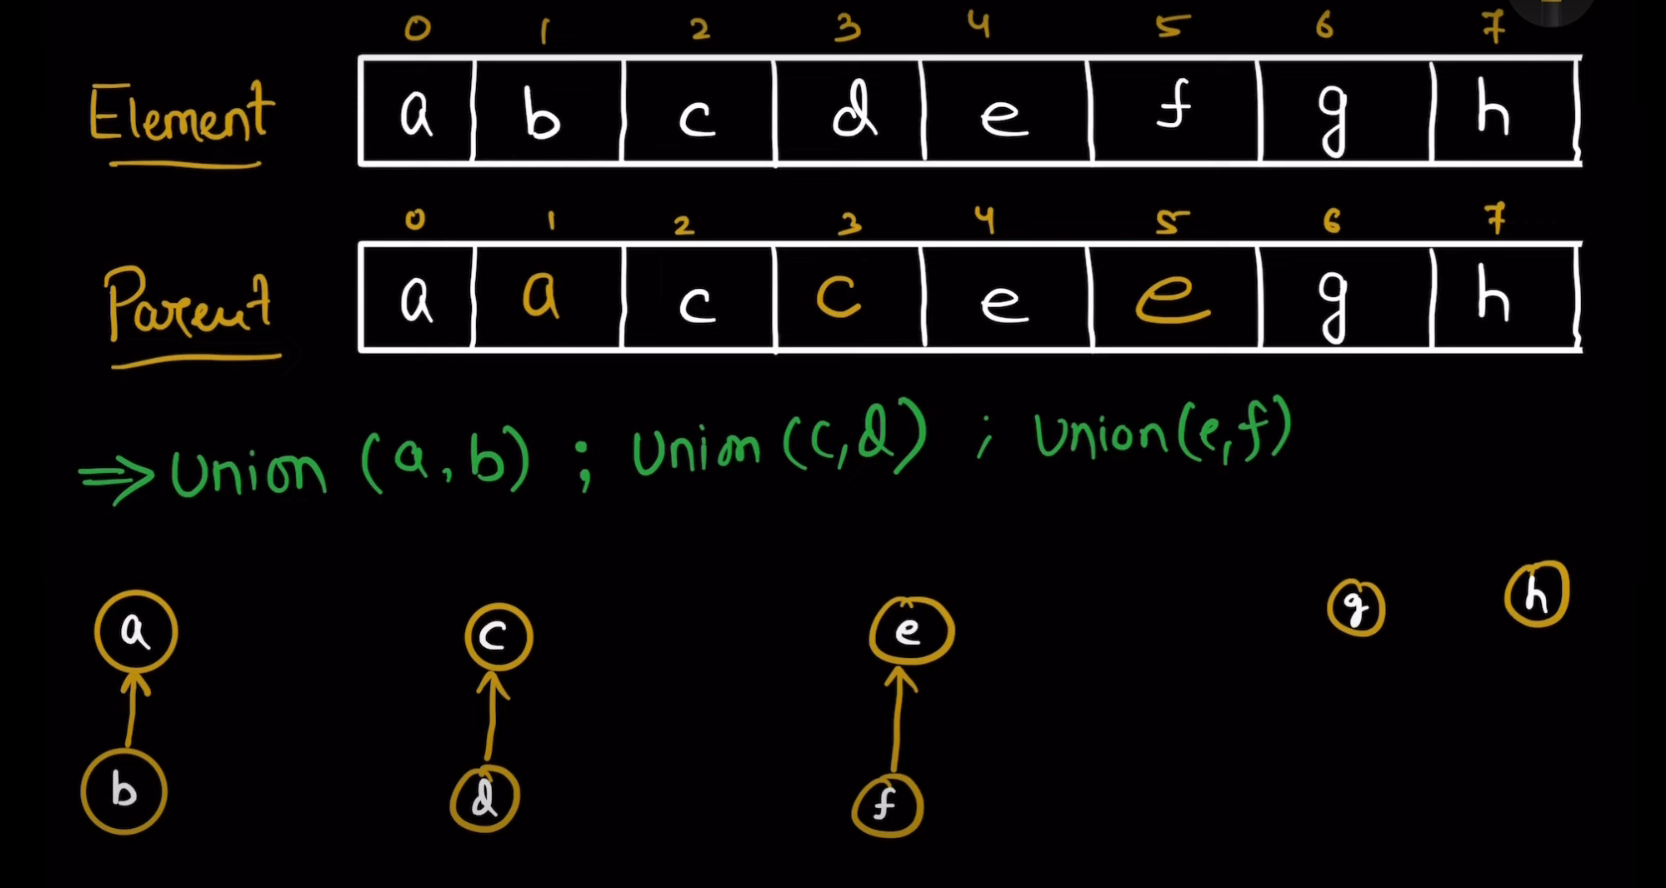 0 1 2 3 4 5 6 7
Element a b c d e f g h
0 1 2 3 4 5 6 7
Parent a a c c e e g h
⇒ Union (a,b) ; Union (c,d) ; Union(e,f)
a c e g h
b d f